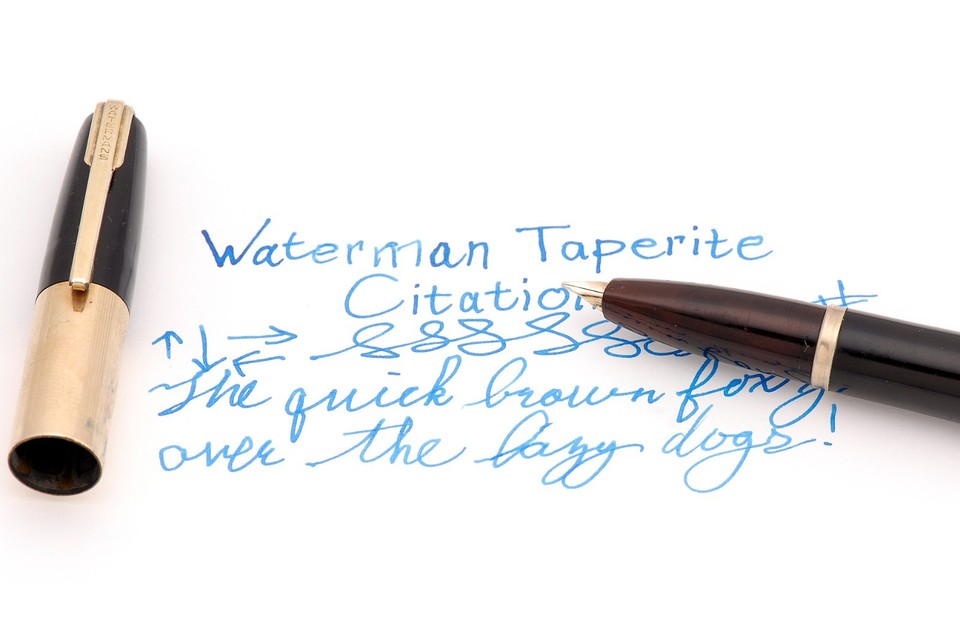 WATERMANS
Waterman Taperite
Citation
The quick brown fox
over the lazy dogs!